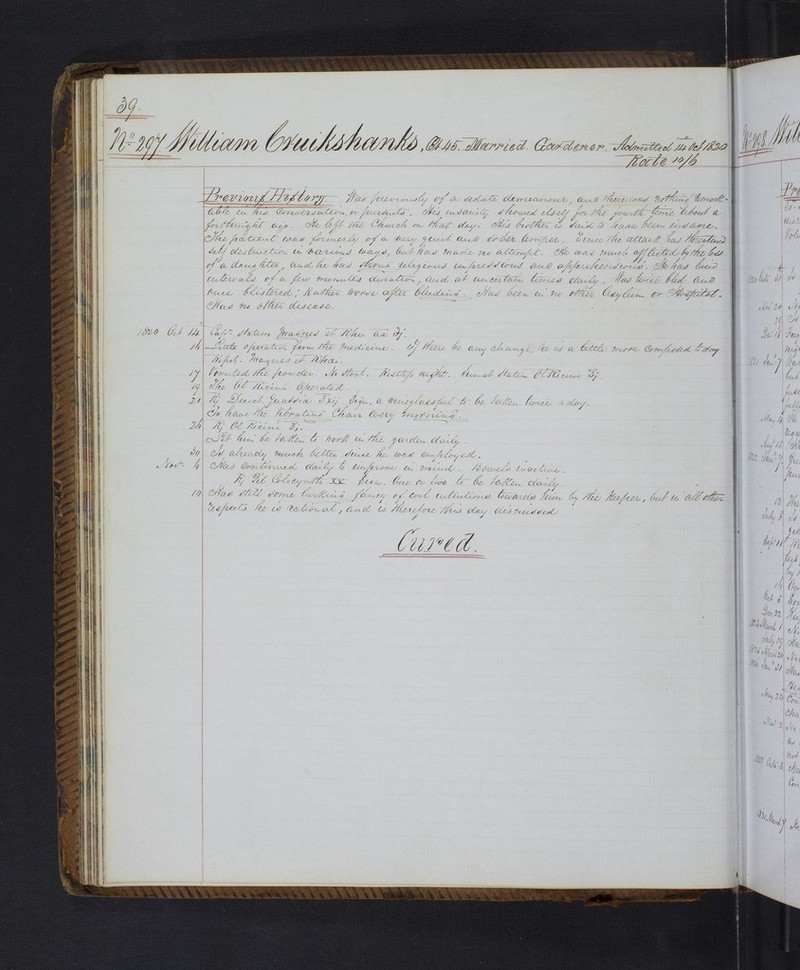 39.
No 297 William Cruikshanks, Æt 45. Married. Gardener. Admitted 14 Oct 1820
Rate 10/6
Previous History Was previously of a sedate demeanour, and there was nothing remark-
able in his conversation, or pursuits. His insanity showed itself for the fourth time about a
fortnight ago. He left the Church on that day. His brother is said to have been insane.
The patient was formerly of a very quiet and sober temper. Since the attack has threatened
self destruction in various ways, but has made no attempt. He was much afflicted by the loss
of a daughter, and he has strong religious impressions and apprehensions. He has lucid
intervals of a few minutes duration, and at uncertain times daily. Was twice bled and
once blistered; Rather worse after bleeding. Has been in no other Asylum or Hospital.
Has no other disease.
1820 Oct 14 Capt. statim Magnes et Rhei aa
16 Little operation from the medicine. If there be any change he is a little more composed to day
Repet. Magnes et Rhei.
17 Vomited the powder. No Stool. Restless night. Sumat statim Ol Ricini
19 The Ol Ricini Operated
21 Decoct. Quassia a wineglassful to be taken twice a day.
To have the Vibrating Chair every morning.
26 Ol Ricini
Let him be taken to work in the garden daily
30 Is already much better since he was employed.
Nov. 4 Has continued daily to improve in mind. Bowels inactive.
Pil Colocynth XX. One or two to be taken daily.
10 Has still some lurking fancy of evil intentions towards him by the Keeper, but in all other
respects he is rational, and is therefore this day dismissed
Cured.